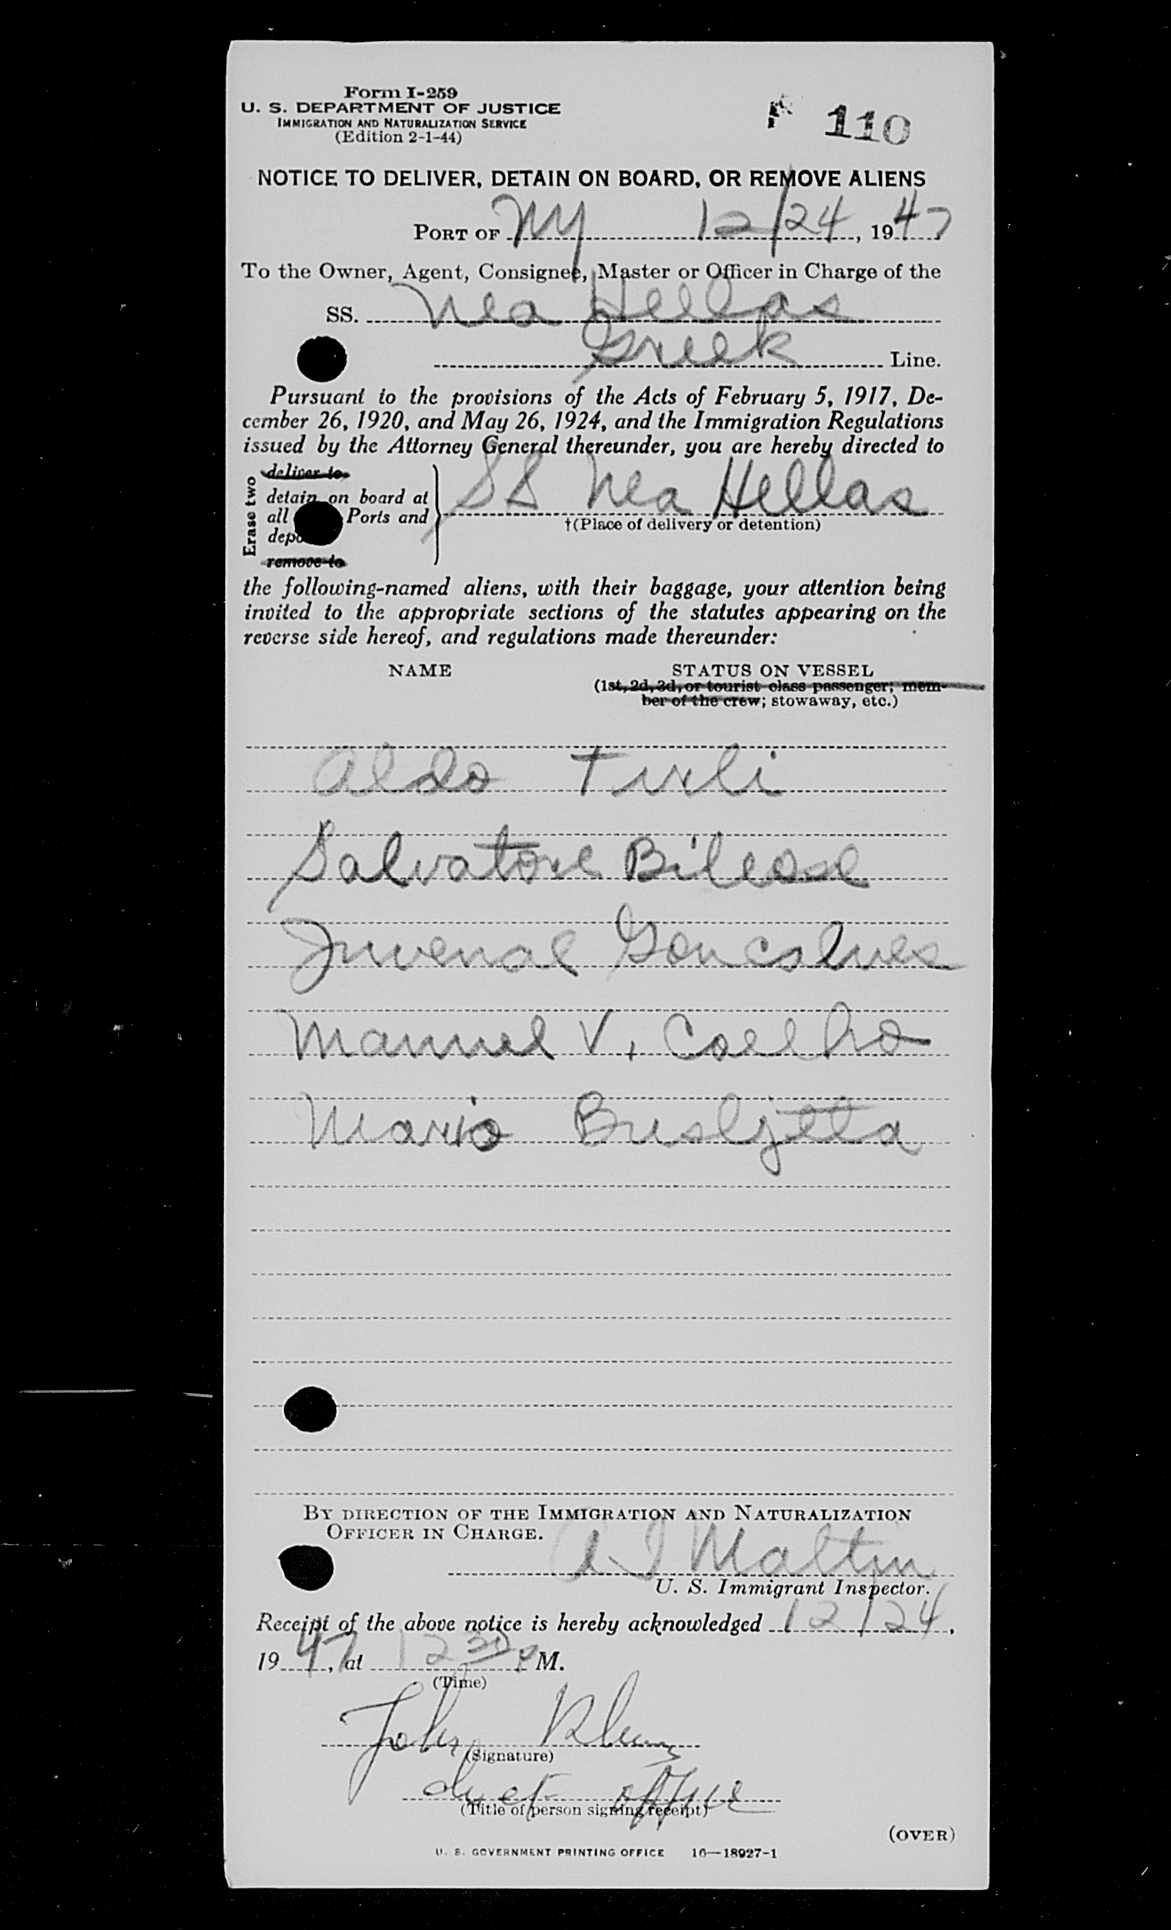 Form I-259
U. S. DEPARTMENT OF JUSTICE
IMMIGRATION AND NATURALIZATION SERVICE
(Edition 2-1-44)
110
NOTICE TO DELIVER, DETAIN ON BOARD, OR REMOVE ALIENS
PORT OF NY 12/24, 1947
To the Owner, Agent, Consignee, Master or Officer in Charge of the
SS. Nea Hellas
Greek Line.
Pursuant to the provisions of the Acts of February 5, 1917, De-
cember 26, 1920, and May 26, 1924, and the Immigration Regulations
issued by the Attorney General thereunder, you are hereby directed to
Erase two
deliver to
detain on board at
all Ports and
depo
remove to
SS Nea Hellas
†(Place of delivery or detention)
the following-named aliens, with their baggage, your attention being
invited to the appropriate sections of the statutes appearing on the
reverse side hereof, and regulations made thereunder:
NAME STATUS ON VESSEL
(1st, 2d, 3d, or tourist class passenger; mem-
ber of the crew; stowaway, etc.)
Aldo Tirli
Salvatore
Juvenal Goncalves
Manuel V. Coelho
Mario Busljetta
BY DIRECTION OF THE IMMIGRATION AND NATURALIZATION
OFFICER IN CHARGE.
U. S. Immigrant Inspector.
Receipt of the above notice is hereby acknowledged 12/24,
1947, at 12 30 P M.
(Time)
John
(Signature)
(Title of person signing receipt)
(OVER)
U. S. GOVERNMENT PRINTING OFFICE 16—18927-1